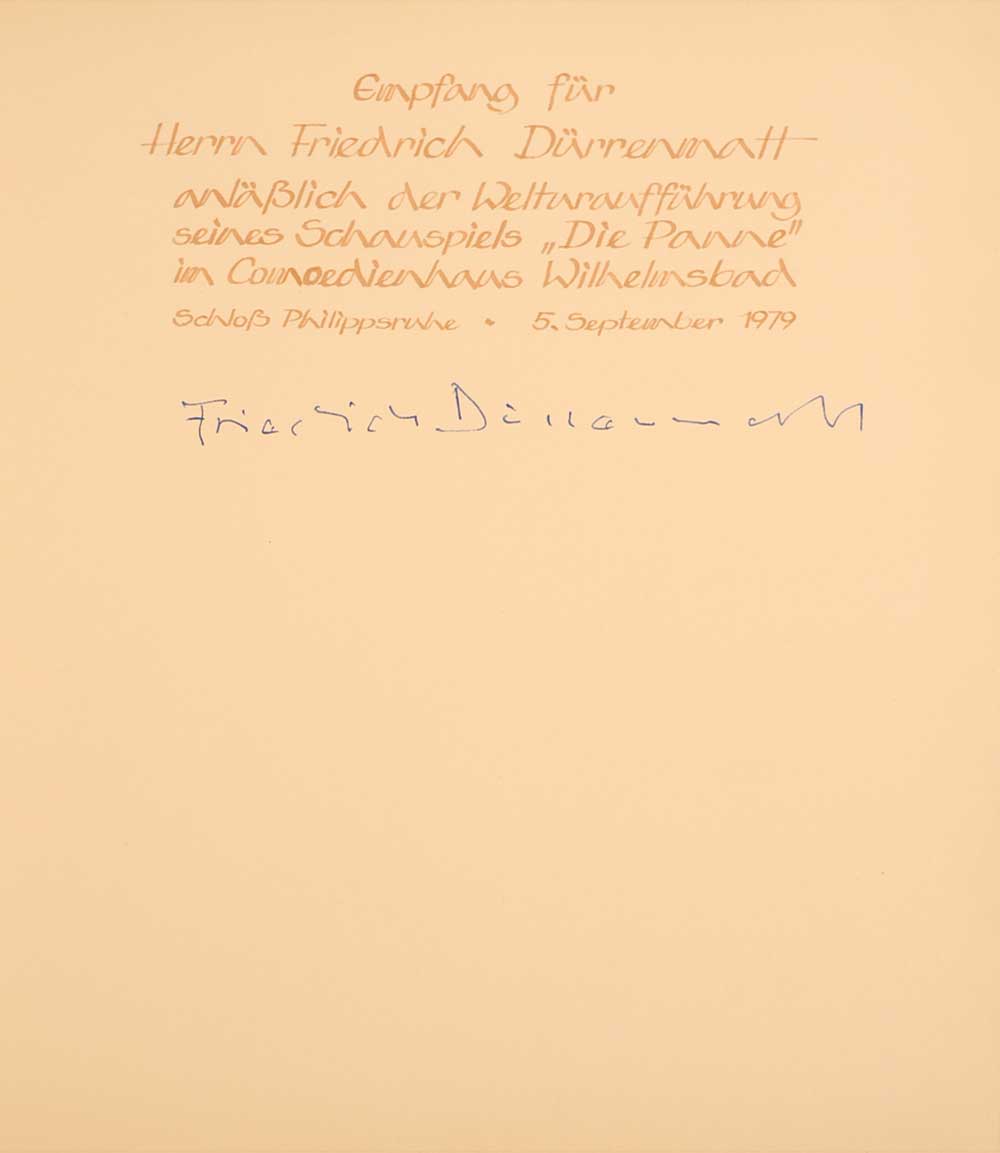 Empfang für
Herrn Friedrich Dürrenmatt
anläßlich der Welturaufführung
seines Schauspiels „Die Panne"
im Comoedienhaus Wilhelmsbad
Schloß Philippsruhe • 5. September 1979
Friedrich Dürrenmatt